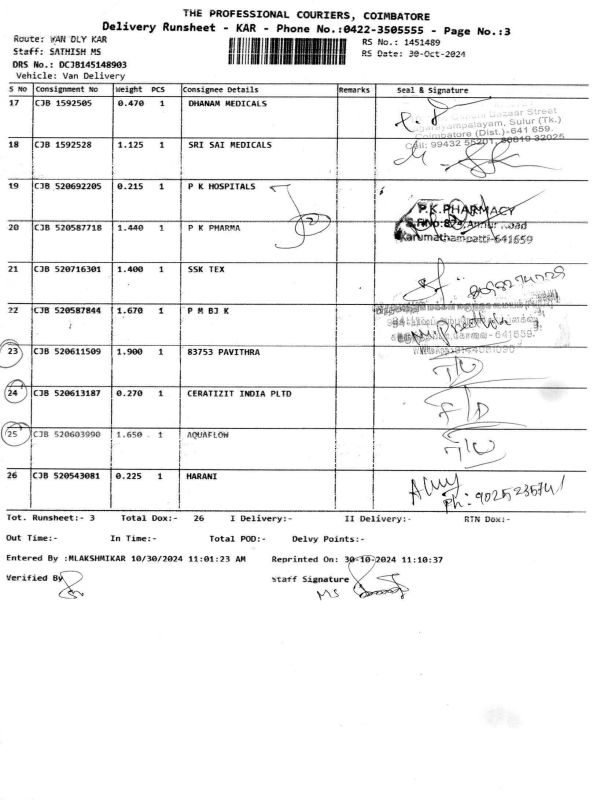 THE PROFESSIONAL COURIERS, COIMBATORE
Delivery Runsheet - KAR - Phone No.:0422-3505555 - Page No.:3
Route: VAN DLY KAR RS No.: 1451489
Staff: SATHISH MS RS Date: 30-Oct-2024
DRS No.: DCJB145148903
Vehicle: Van Delivery
S No Consignment No Weight PCS Consignee Details Remarks Seal & Signature
17 CJB 1592505 0.470 1 DHANAM MEDICALS
Bazaar Street
Sulur (Tk.)
Coimbatore (Dist.)-641 659.
18 CJB 1592528 1.125 1 SRI SAI MEDICALS
19 CJB 520692205 0.215 1 P K HOSPITALS
P.K.PHARMACY
20 CJB 520587718 1.440 1 P K PHARMA
Karumathampatti-641659
21 CJB 520716301 1.400 1 SSK TEX
22 CJB 520587844 1.670 1 P M BJ K
23 CJB 520611509 1.900 1 83753 PAVITHRA
24 CJB 520613187 0.270 1 CERATIZIT INDIA PLTD
25 CJB 520603990 1.650 1 AQUAFLOW
26 CJB 520543081 0.225 1 HARANI
Ph: 9025235741
Tot. Runsheet:- 3 Total Dox:- 26 I Delivery:- II Delivery:- RTN Dox:-
Out Time:- In Time:- Total POD:- Delvy Points:-
Entered By :MLAKSHMIKAR 10/30/2024 11:01:23 AM Reprinted On: 30-10-2024 11:10:37
Verified By Staff Signature
MS